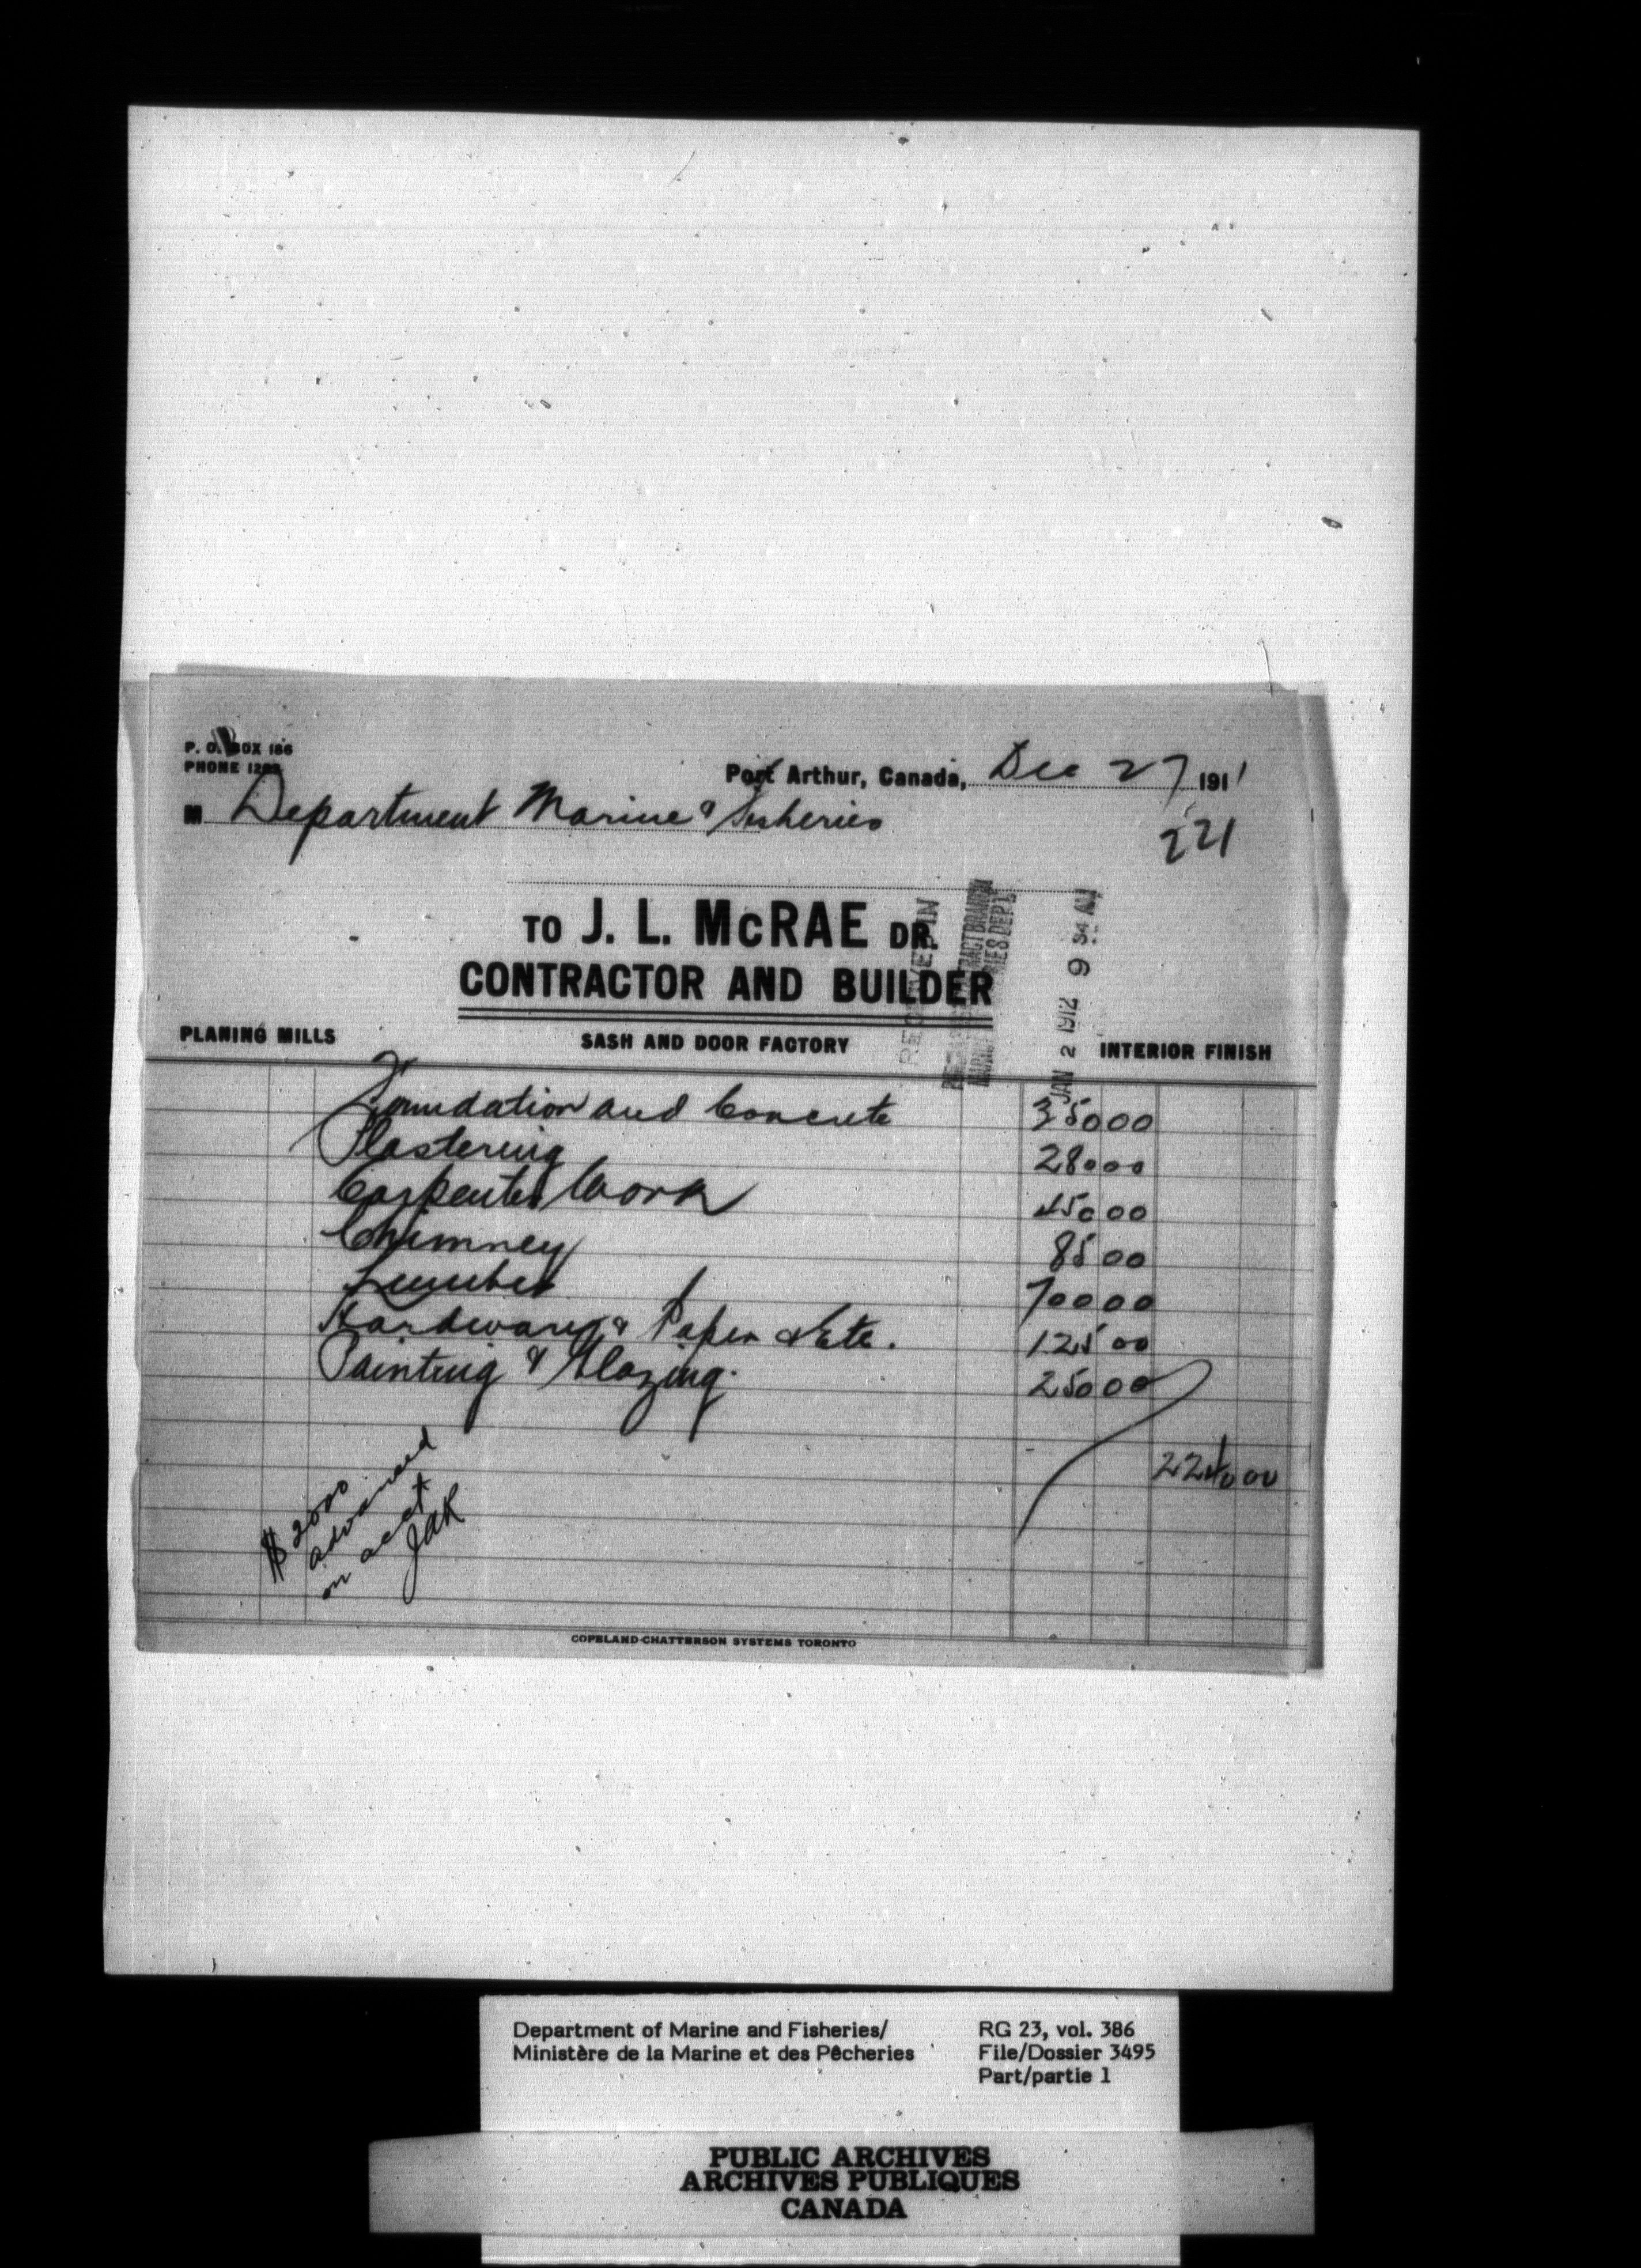 P. O. BOX 186
PHONE
Port Arthur, Canada, Dec 27 1911
M Department Marine & Fisheries
221
TO J. L. McRAE DR.
CONTRACTOR AND BUILDER
RECEIVED IN
JAN 2 1912 9 34 AM
PLANING MILLS SASH AND DOOR FACTORY INTERIOR FINISH
Foundation and Concrete 350 00
Plastering 280 00
Carpenter Work 450 00
Chimney 85 00
Lumber 700 00
Hardware & Paper & Etc. 125 00
Painting & Glazing. 250 00
2240 00
$2000
advanced
on acct
JAK
COPELAND-CHATTERSON SYSTEMS TORONTO
Department of Marine and Fisheries/
Ministère de la Marine et des Pêcheries
RG 23, vol. 386
File/Dossier 3495
Part/partie 1
PUBLIC ARCHIVES
ARCHIVES PUBLIQUES
CANADA